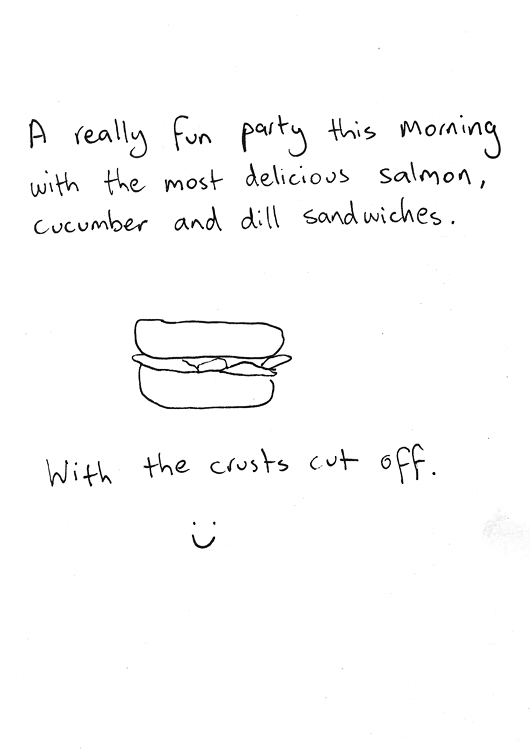 A really fun party this morning
with the most delicious salmon,
cucumber and dill sandwiches.
With the crusts cut off.